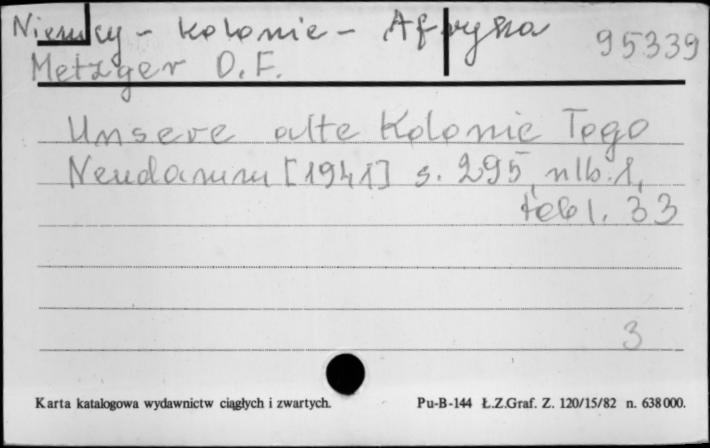 Niemcy - kolonie - Afryka 95339
Metzger O. F.
Unsere alte Kolonie Togo
Neudamm [1941] s. 295, nlb. 1,
tabl. 33
3
Karta katalogowa wydawnictw ciągłych i zwartych. Pu-B-144 Ł.Z.Graf. Z. 120/15/82 n. 638000.